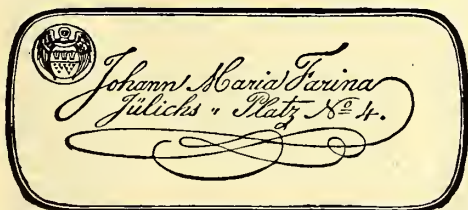 Johann Maria Farina
Jülichs „ Platz No 4.